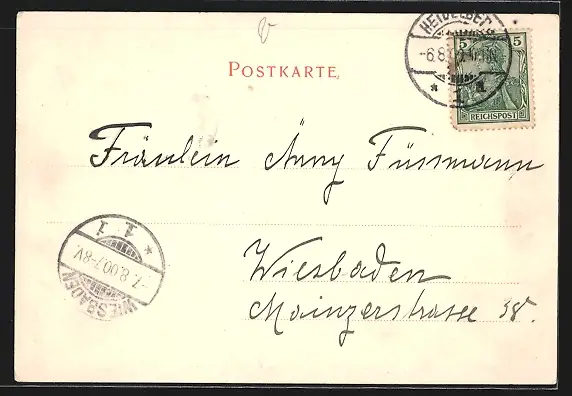 HEIDELBERG
-6.8.
* 1.
5 5
REICHSPOST
POSTKARTE.
Fräulein Anny Füssmann
Wiesbaden
Mainzerstrasse 38.
* 1 1
-7.8.00.7-8V.
WIESBADEN